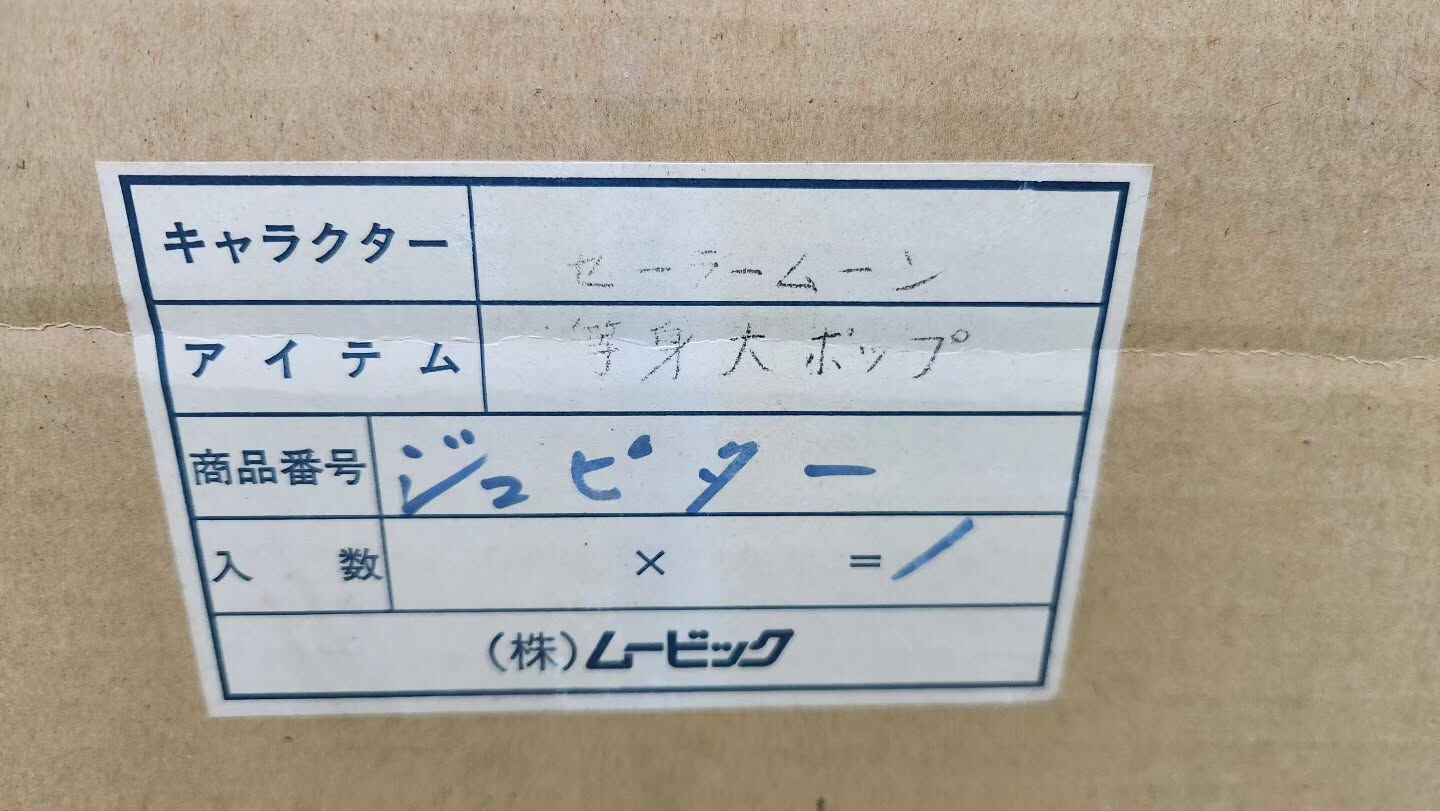 キャラクター セーラームーン
アイテム 等身大ポップ
商品番号 ジュピター
入数 × =1
(株)ムービック